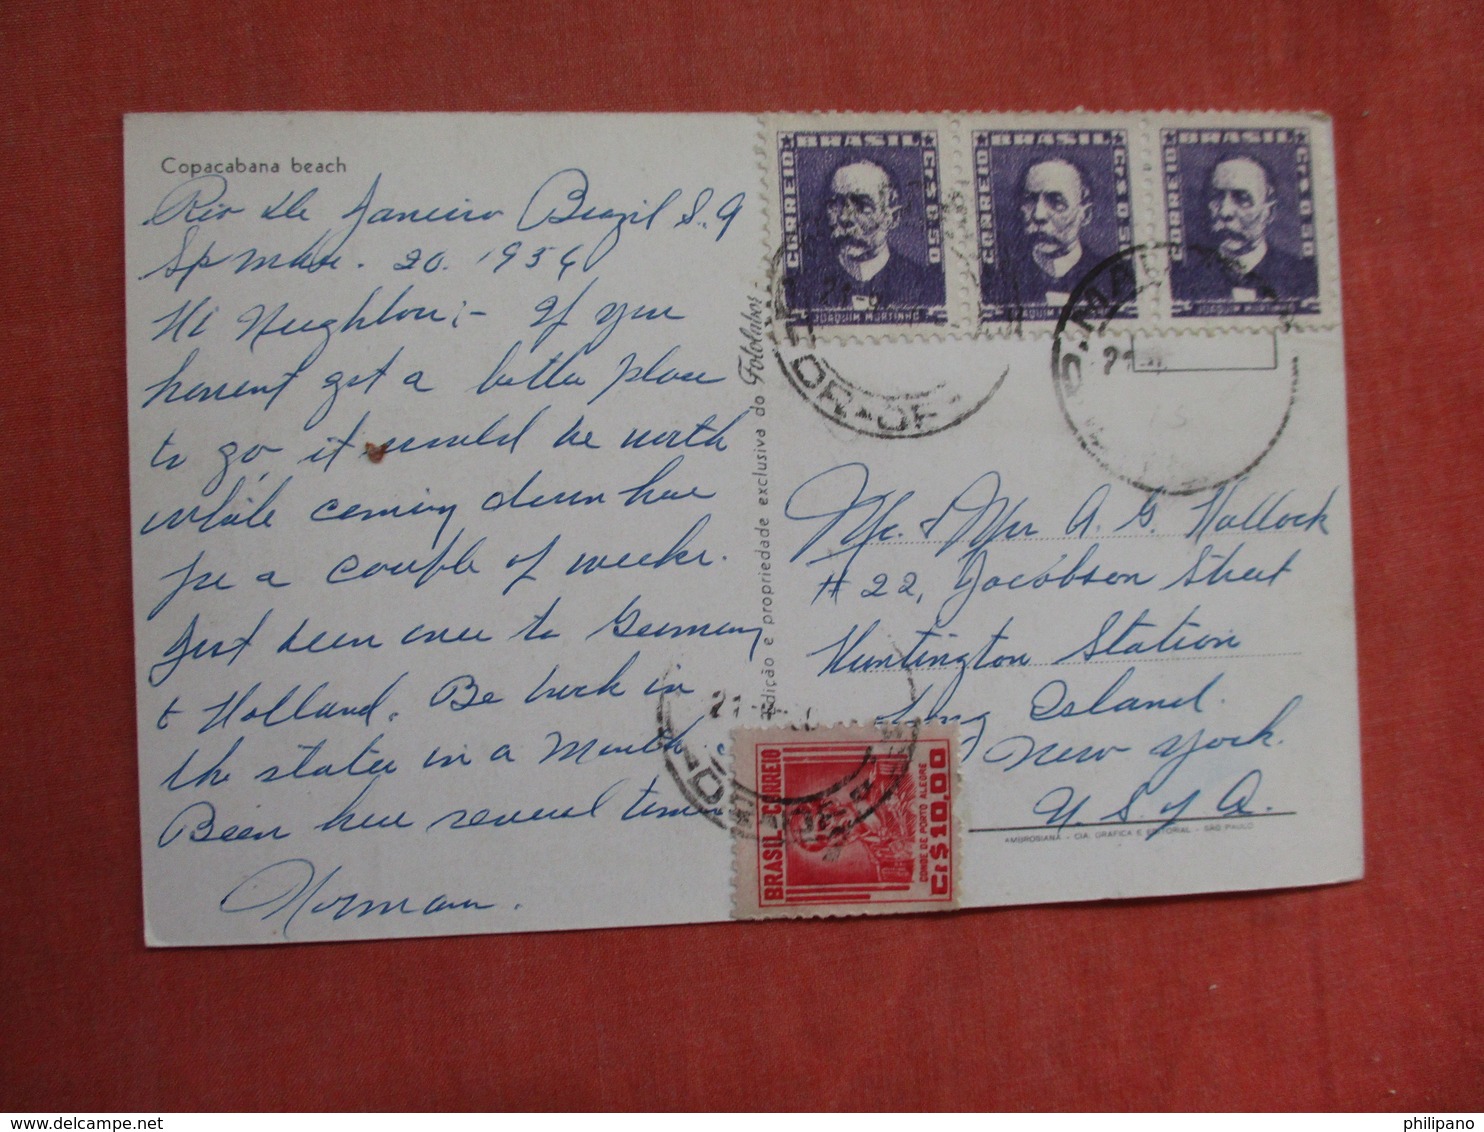 Copacabana beach
Rio de Janeiro Brazil S. A
20. 1956
Hi Neighbor:- If you
havent got a better place
to go it would be worth
while coming down here
for a couple of weeks.
Just been over to Germany
& Holland. Be back in
the states in a Month.
Been here several times
Norman.
Edição e propriedade exclusiva do Fotolabor
BRASIL
CORREIO
Cr$ 0,50
JOAQUIM MURTINHO
BRASIL
CORREIO
Cr$ 0,50
JOAQUIM MURTINHO
BRASIL
CORREIO
Cr$ 0,50
JOAQUIM MURTINHO
Mr. & Mrs A. G. Hallock
# 22, Jacobson Street
Huntington Station
Long Island.
New York.
U. S. of A.
AMBROSIANA - CIA. GRAFICA E EDITORIAL - SÃO PAULO
BRASIL CORREIO
CONDE DE PORTO ALEGRE
Cr$ 10,00
http://www.delcampe.net
philipano